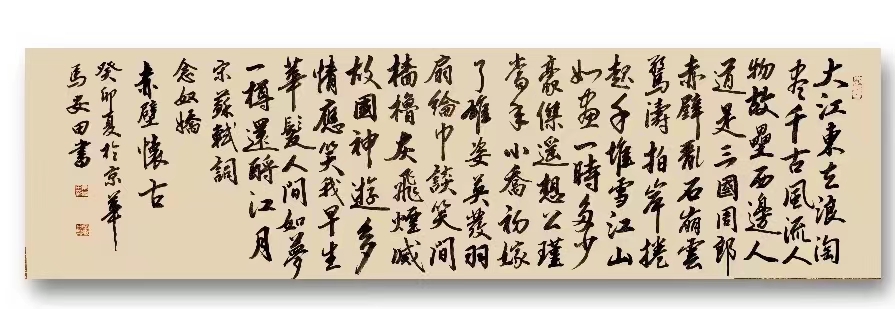 大江東去浪淘
尽千古風流人
物故壘西邊人
道是三國周郎
赤壁亂石崩雲
驚濤拍岸捲
起千堆雪江山
如畫一時多少
豪傑遥想公瑾
當年小喬初嫁
了雄姿英發羽
扇綸巾談笑間
檣櫓灰飛煙滅
故國神遊多
情應笑我早生
華髮人間如夢
一樽還酹江月
宋蘇軾詞
念奴嬌
赤壁懷古
癸卯夏於京華
馬安田書